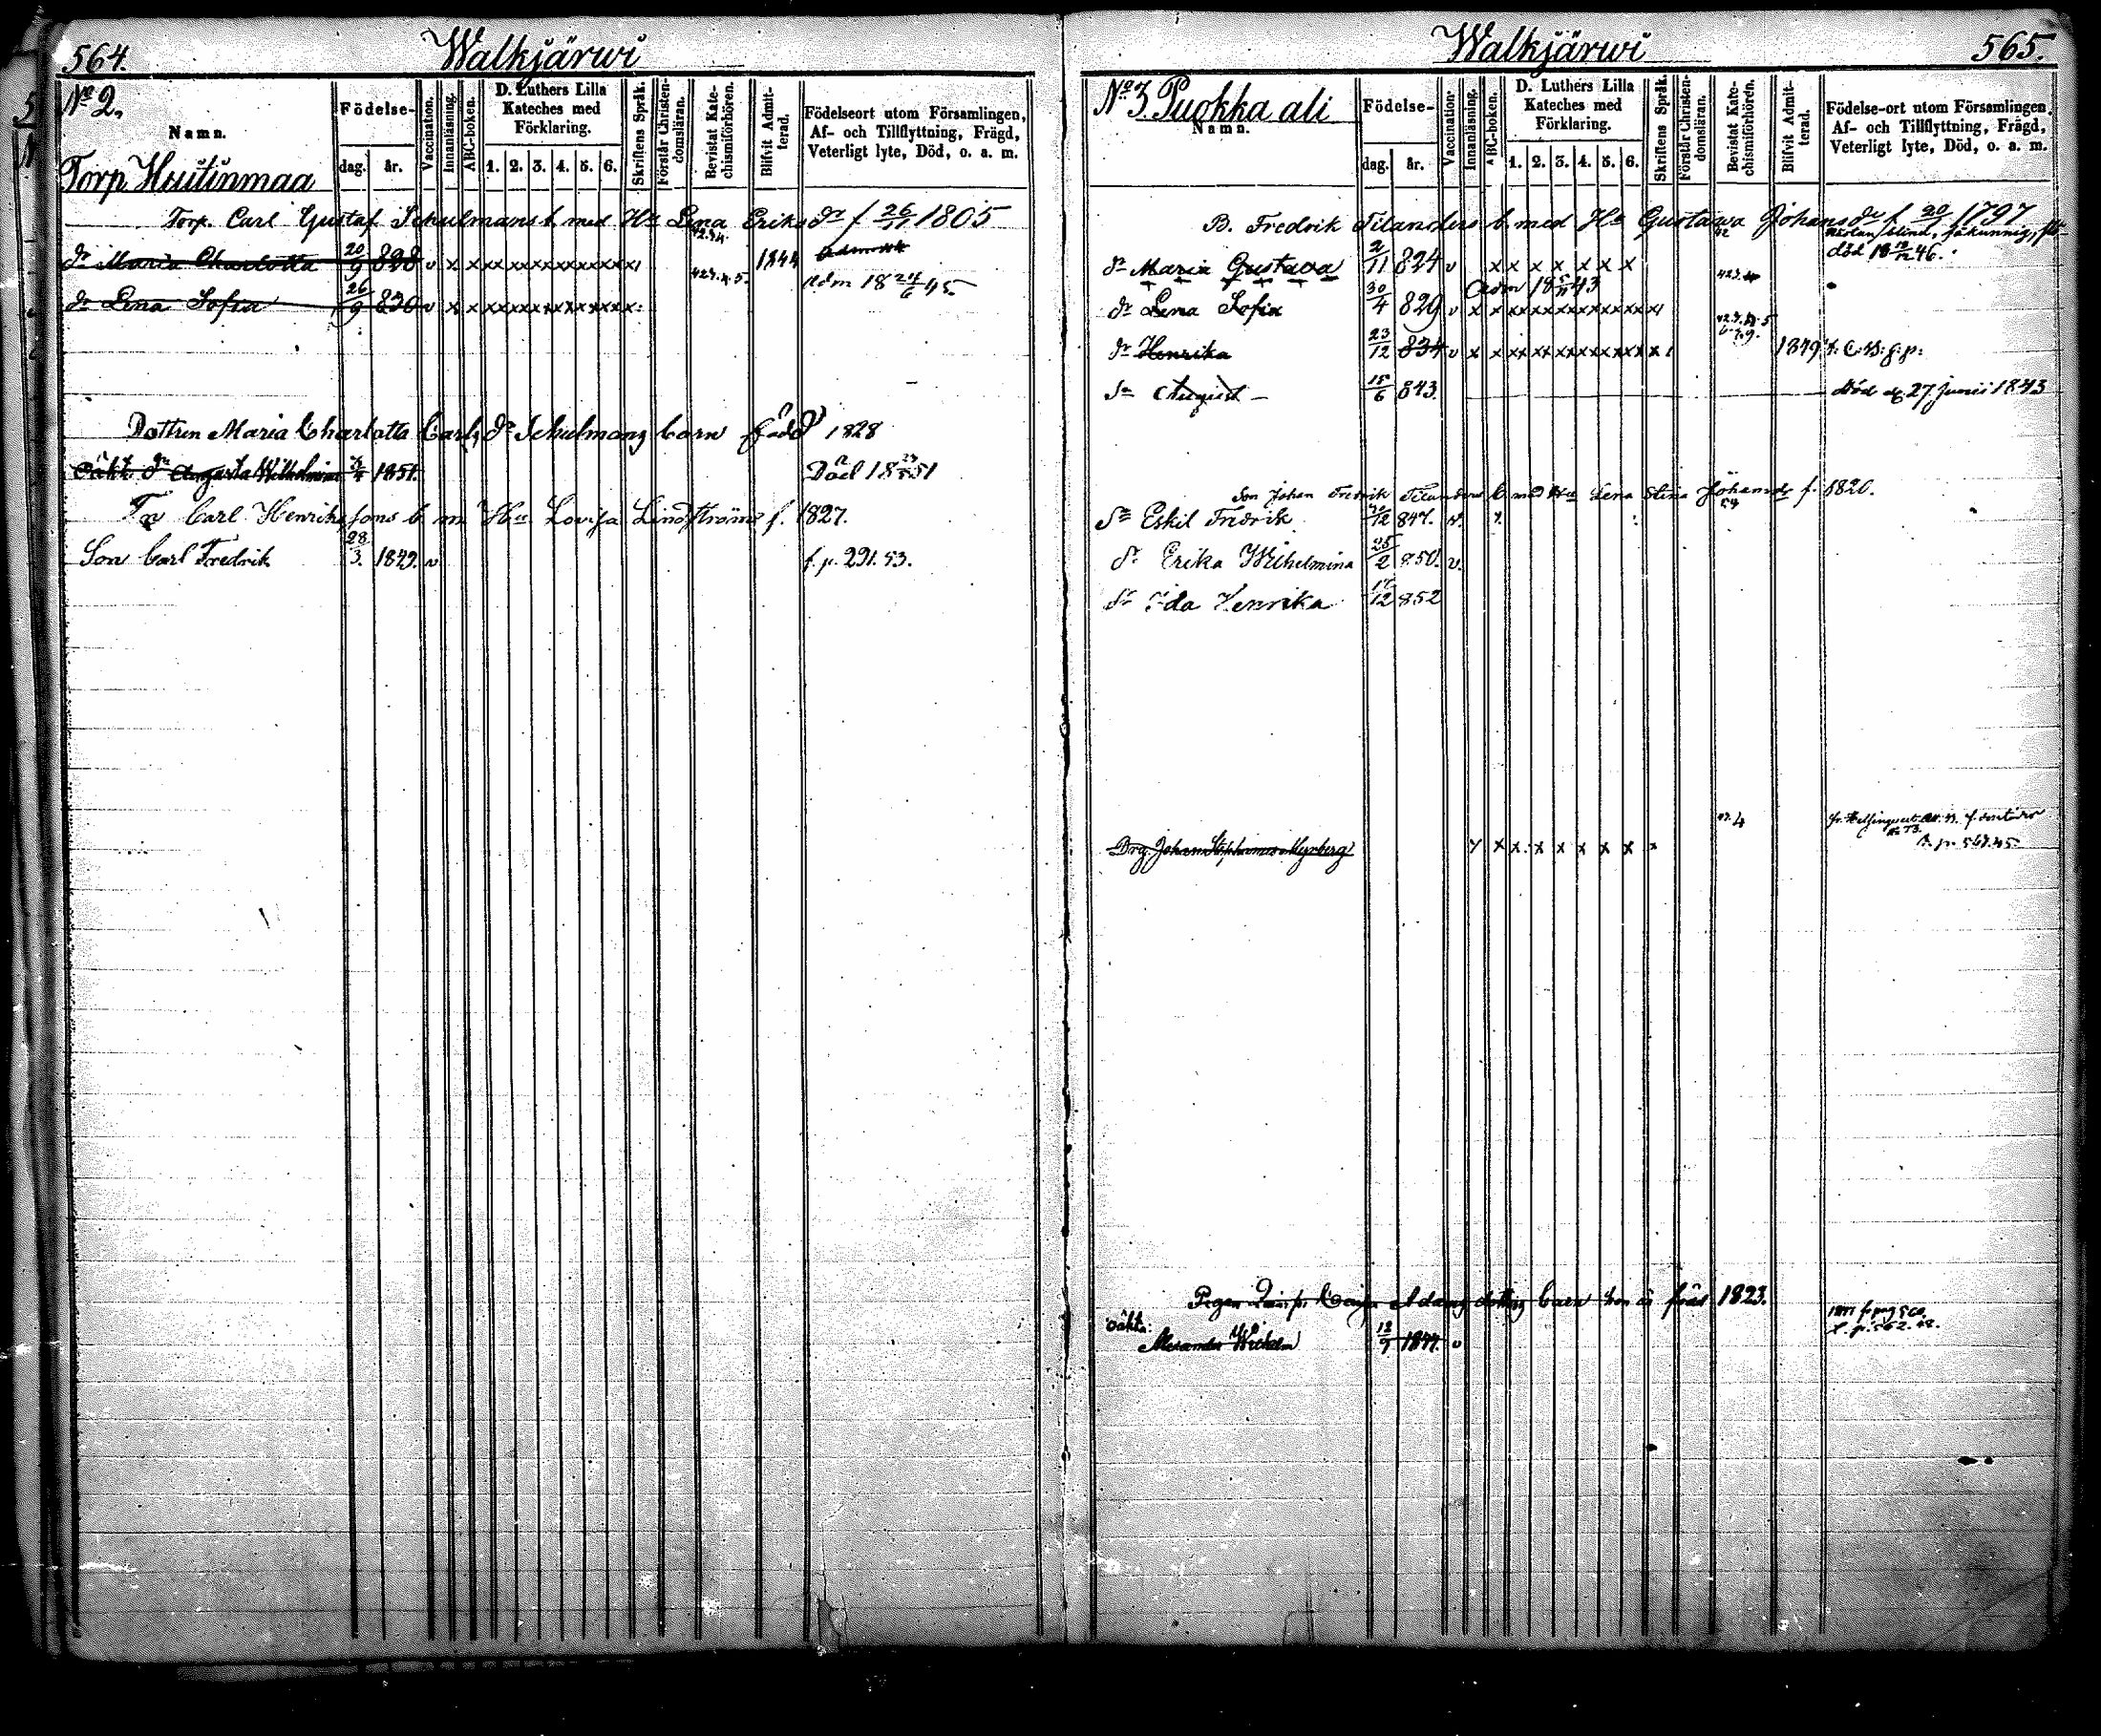 564.
Walkjärwi
No 2.
Namn.
Födelse-
dag.
år.
Vaccination.
Innanläsning.
ABC-boken.
D. Luthers Lilla
Kateches med
Förklaring.
1. 2. 3. 4. 5. 6.
Skriftens Språk.
Förstår Christen-
domsläran.
Bevistat Kate-
chismiförhören.
Blifvit Admit-
terad.
Födelseort utom Församlingen,
Af- och Tillflyttning, Frägd,
Veterligt lyte, Död, o. a. m.
Torp Huitinmaa
Torp. Carl Gustaf Schulmans b. med Hu Lena Eriksdr f 1805
dr Maria Charlotta 20/9 828 v x x xxxxxxxxxxxx 1844
dr Lena Sofia 26/9 830 v x x xxxxxxxxxxxx adm 18 24/6 45.
Dottren Maria Charlotta Carlsdr Schulmans barn född 1828
oäkt dr Wilhelmina 1851. Död 18 51
Carl Henrikssons b. m Hu Lovisa Lindström f. 1827.
Son Carl Fredrik 28/3. 1849. v f. p. 291. 53.
Walkjärwi
565.
No 3. Puokka ali
Namn.
Födelse-
dag.
år.
Vaccination.
Innanläsning.
ABC-boken.
D. Luthers Lilla
Kateches med
Förklaring.
1. 2. 3. 4. 5. 6.
Skriftens Språk.
Förstår Christen-
domsläran.
Bevistat Kate-
chismiförhören.
Blifvit Admit-
terad.
Födelse-ort utom Församlingen,
Af- och Tillflyttning, Frägd,
Veterligt lyte, Död, o. a. m.
B. Fredrik Tilanders b. med Hu Gustawa Johansdr f 20 1797
dr Maria Gustava 2/11 824 v x x x x x x x blind, död 18 46.
Adm 18 43
dr Lena Sofia 30/4 829 v x x xxxxxxxxxxxx
dr Henrika 23/12 834 v x x xxxxxxxxxxxx x 1849
Sn August 15/6 843. död d. 27 junii 1843
Son Johan Fredrik Tilanders b. med Hu Lena Stina Johansdr f. 1820.
Sn Eskil Fredrik 12 847. v.
dr Erika Wilhelmina 25/2 850. v.
dr Ida Henrika 12 852
Drg. Johan Stephanus Myrberg x x x x x x x x
p. 567. 45
Pigan dotters barn hon är född 1823.
oäkta:
Alexander Wilhelm 1847. v